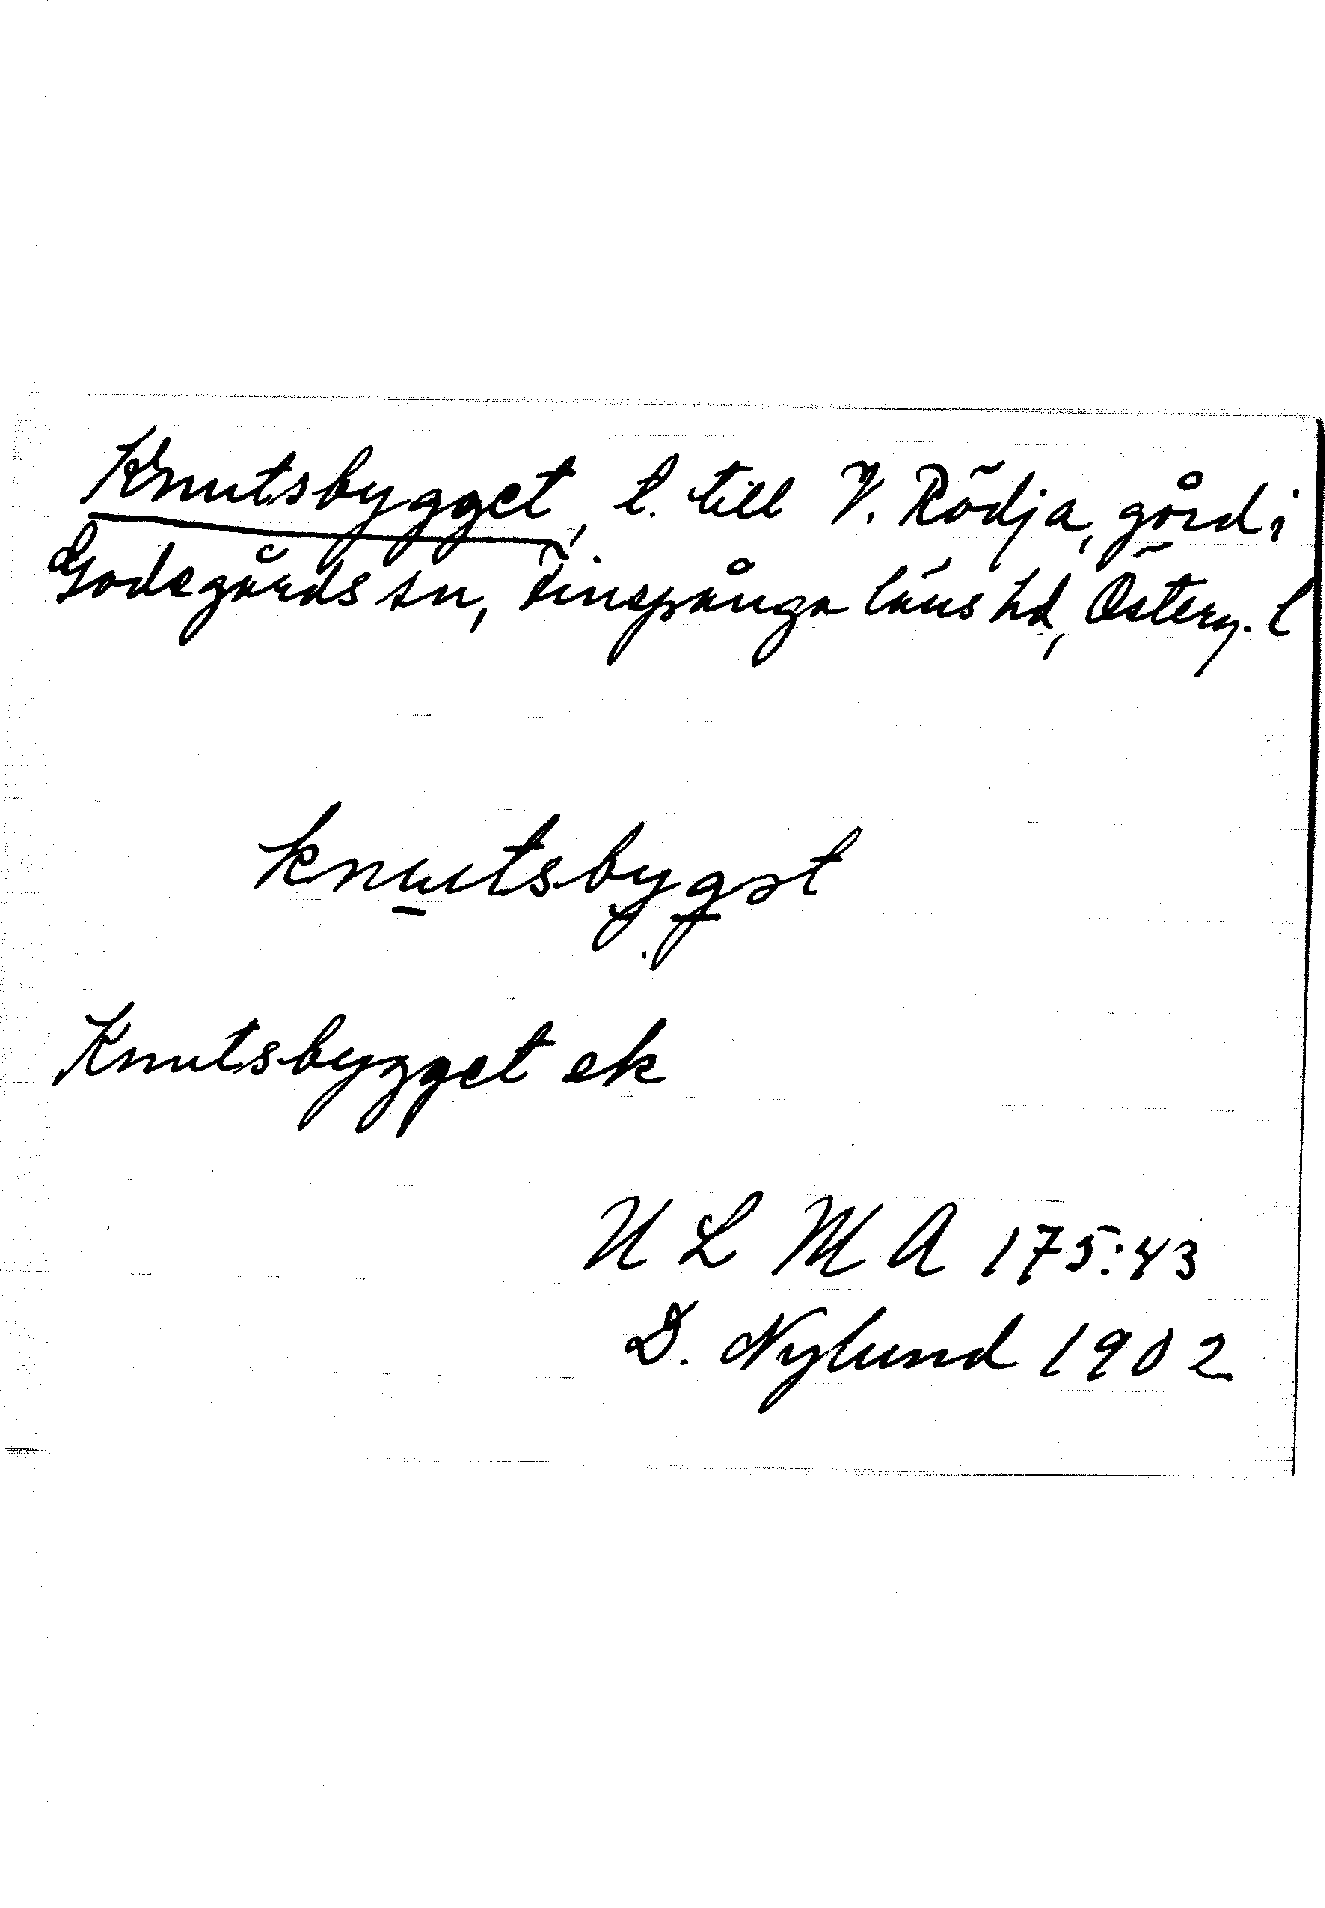 Knutsbygget, l. till V. Rödja, gård i
Godegårds sn, Finspånga läns hd, Österg. l
knutsbygət
Knutsbygget ek
U L M A 175:43
D. Nylund 1902